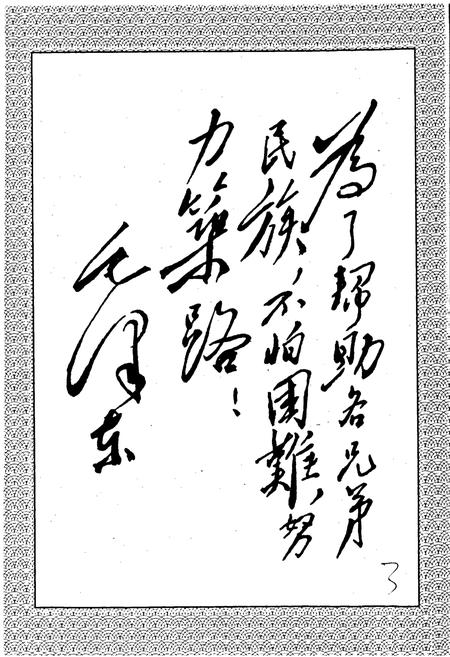 为了帮助各兄弟
民族，不怕困難，努
力築路！
毛泽东
3